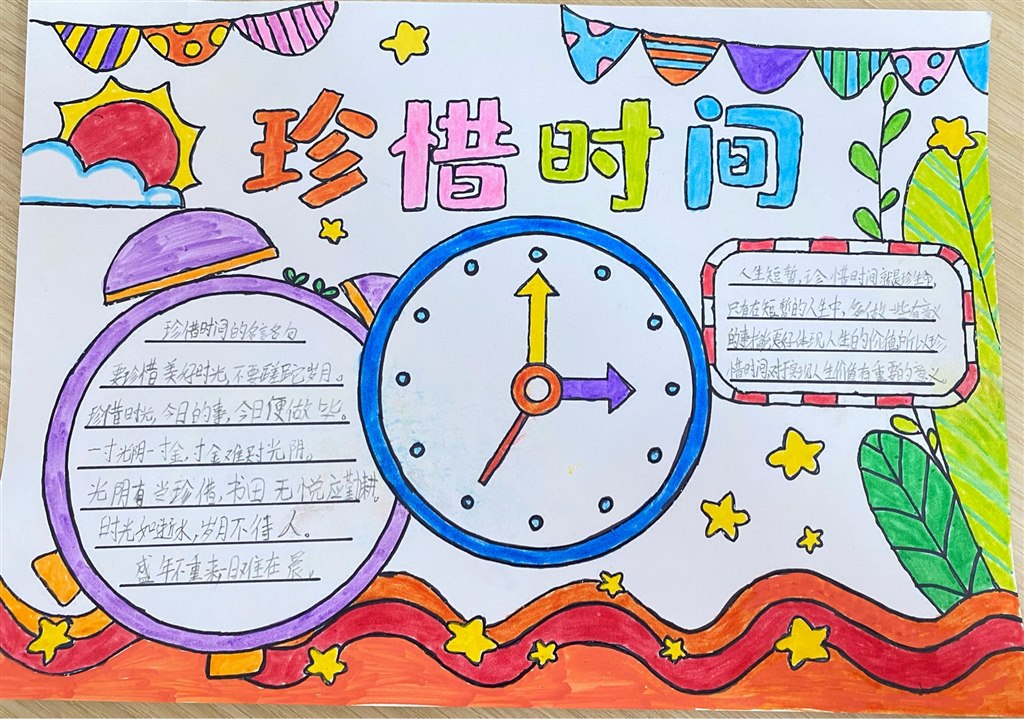 珍惜时间
珍惜时间的名言名句
要珍惜美好时光,不要蹉跎岁月。
珍惜时光,今日的事,今日便做毕。
一寸光阴一寸金,寸金难买寸光阴。
光阴有当珍惜,书田无悦应勤耕。
时光如逝水,岁月不待人。
盛年不重来一日难在晨。
人生短暂,珍惜时间就是珍生命,
只有在短暂的人生中,多做一些有意义
的事才能更好体现人生的价值,所以珍
惜时间对于实现人生价值有重要的意义。